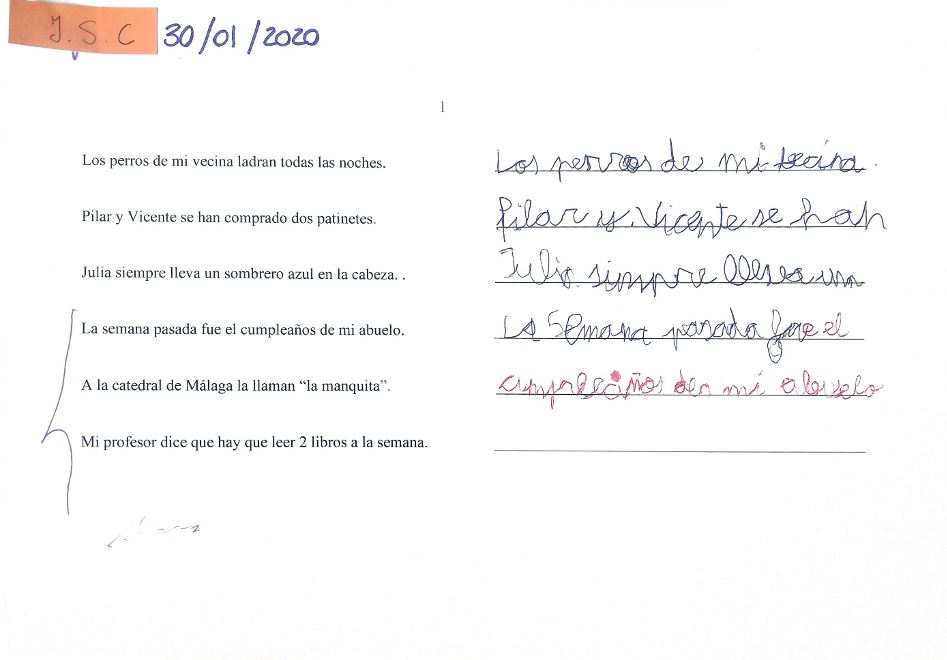 J. S. C 30/01/2020
1
Los perros de mi vecina ladran todas las noches.
Los perros de mi
Pilar y Vicente se han comprado dos patinetes.
Pilar y Vicente se han
Julia siempre lleva un sombrero azul en la cabeza. .
Julia simpre lleva un
La semana pasada fue el cumpleaños de mi abuelo.
La Semana pasada fue el
A la catedral de Málaga la llaman “la manquita”.
mi
Mi profesor dice que hay que leer 2 libros a la semana.